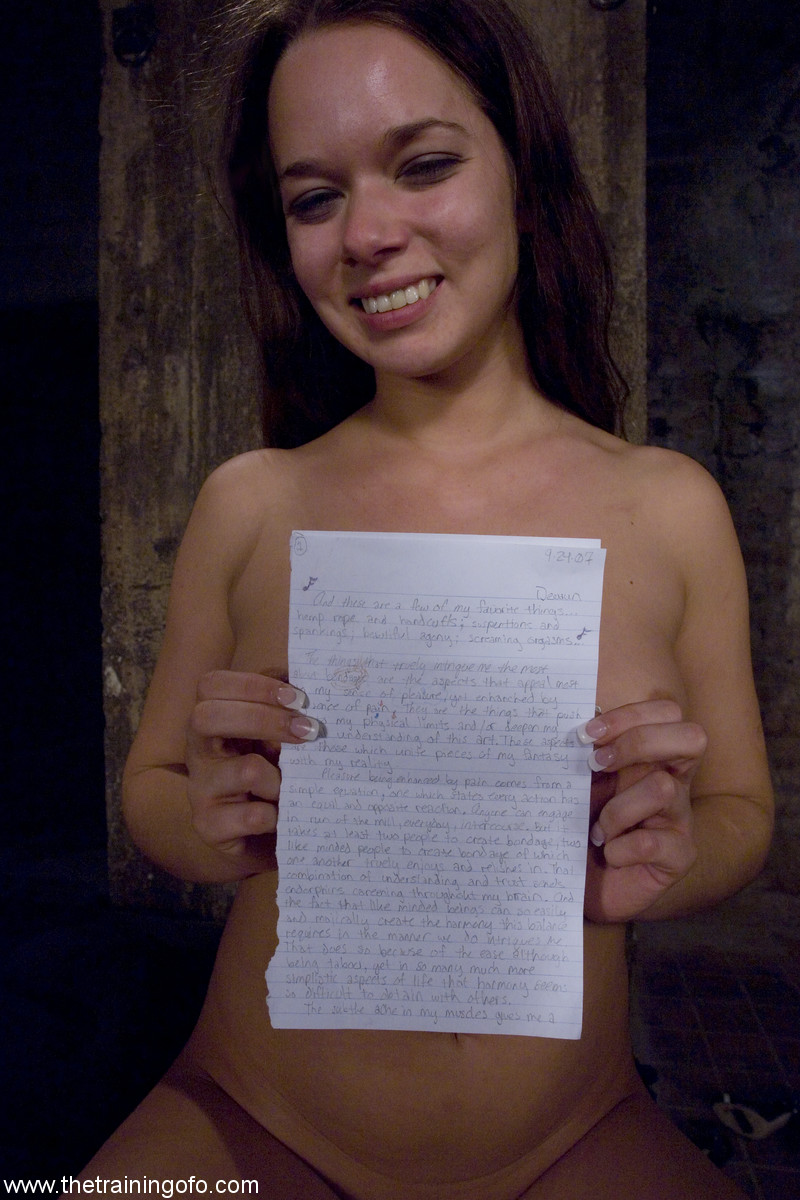 2
9-24-07
And these are a few of my favorite things...
hemp rope and handcuffs; suspentions and
spankings; beautiful agony; screaming orgasms...
The things that truely intrigue me the most
about bondage are the aspects that appeal most
my sence of pleasure, yet enhanced by
of pain, they are the things that push
my physical limits and/or deepen my
understanding of this art. These aspects
are those which unite pieces of my fantasy
with my reality.
Pleasure being enhanced by pain comes from a
simple equation, one which states every action has
an equil and opposite reaction. can engage
in run of the mill, everyday, intercourse. But it
takes at least two people to create bondage, two
like minded people to create bondage of which
one another truely enjoys and relishes in. That
combination of understanding and trust sends
endorphins careening throughout my brain. And
the fact that like minded beings can so easily
and magically create the harmony this balance
requires in the manner we do intrigues me
That does so because of the ease although
being taboo, yet in so many much more
simplistic aspects of life that harmony seems
so difficult to obtain with others.
The subtle ache in my muscles gives me a
www.thetrainingofo.com